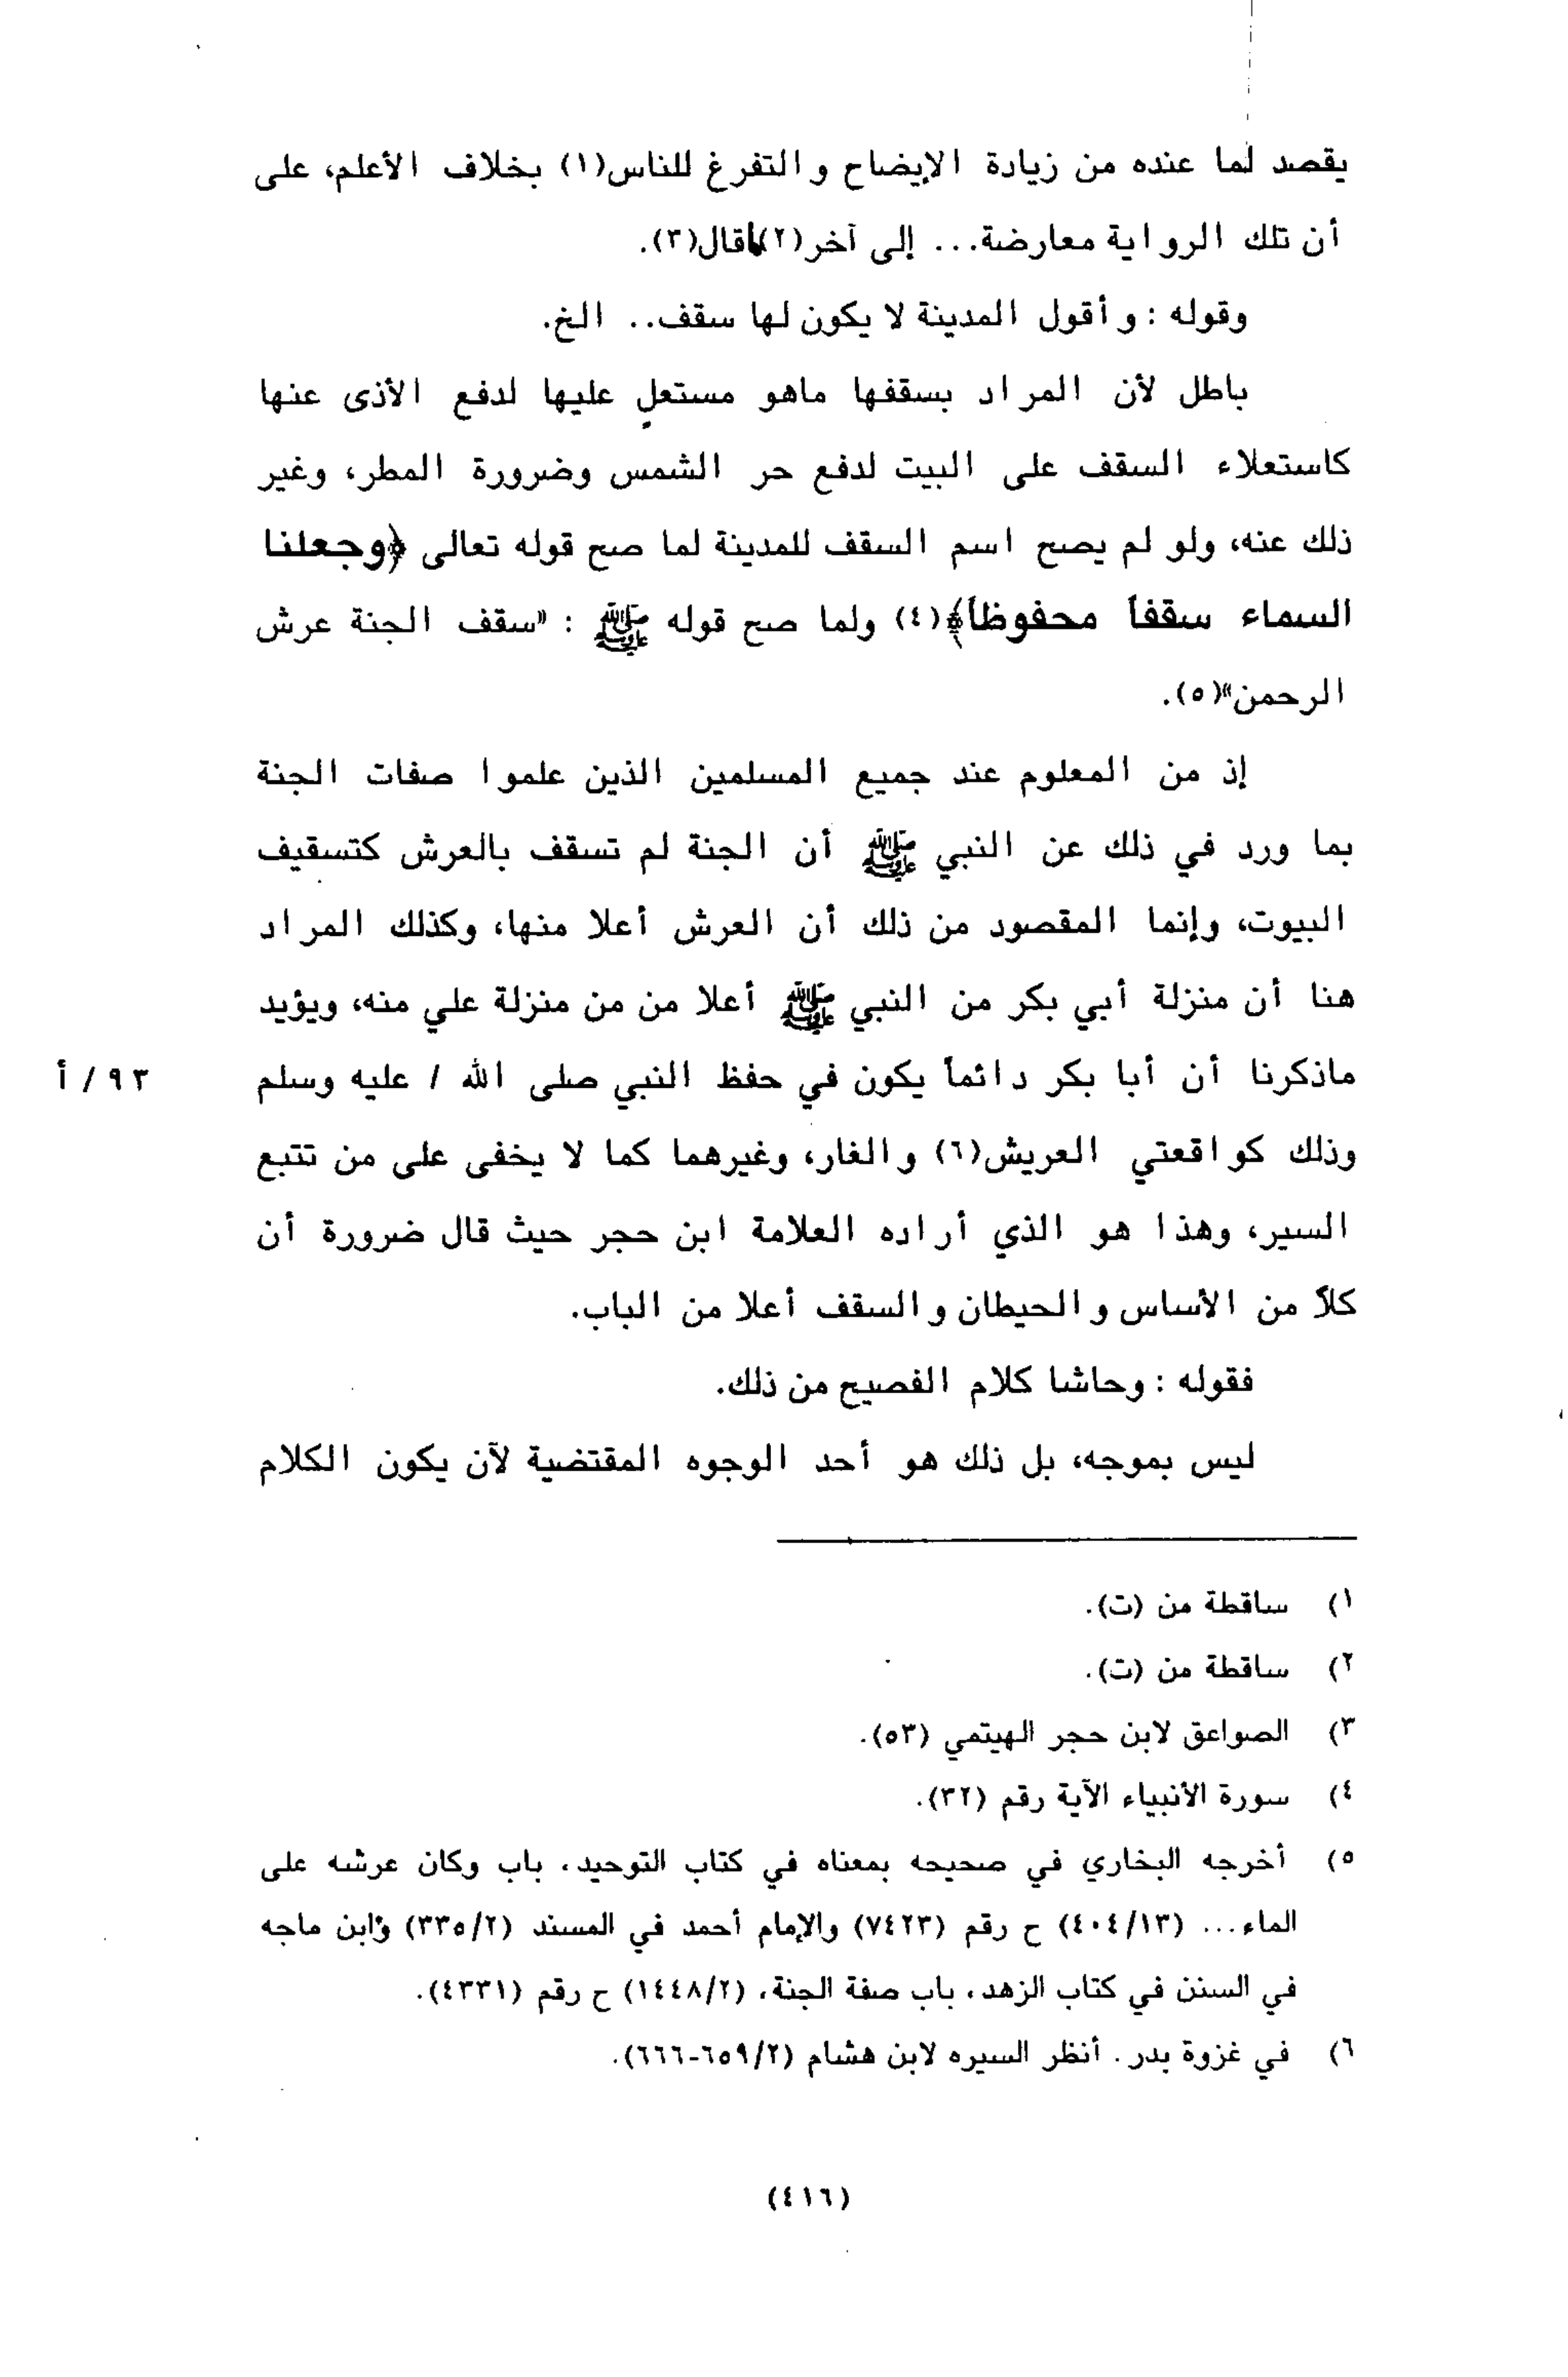 يقصد لما عنده من زيادة الإيضاح والتفرغ للناس(١) بخلاف الأعلم، على
أن تلك الرواية معارضة... إلى آخر(٢)ماقال(٣).
وقوله : وأقول المدينة لا يكون لها سقف.. الخ.
باطل لأن المراد بسقفها ماهو مستعلٍ عليها لدفع الأذى عنها
كاستعلاء السقف على البيت لدفع حر الشمس وضرورة المطر، وغير
ذلك عنه، ولو لم يصح اسم السقف للمدينة لما صح قوله تعالى ﴿وجعلنا
السماء سقفاً محفوظاً﴾(٤) ولما صح قوله ﷺ : «سقف الجنة عرش
الرحمن»(٥).
إذ من المعلوم عند جميع المسلمين الذين علموا صفات الجنة
بما ورد في ذلك عن النبي ﷺ أن الجنة لم تسقف بالعرش كتسقيف
البيوت، وإنما المقصود من ذلك أن العرش أعلا منها، وكذلك المراد
هنا أن منزلة أبي بكر من النبي ﷺ أعلا من من منزلة علي منه، ويؤيد
ماذكرنا أن أبا بكر دائماً يكون في حفظ النبي صلى الله / عليه وسلم ٩٣/أ
وذلك كواقعتي العريش(٦) والغار، وغيرهما كما لا يخفى على من تتبع
السير، وهذا هو الذي أراده العلامة ابن حجر حيث قال ضرورة أن
كلاً من الأساس والحيطان والسقف أعلا من الباب.
فقوله : وحاشا كلام الفصيح من ذلك.
ليس بموجه، بل ذلك هو أحد الوجوه المقتضية لآن يكون الكلام
١) ساقطة من (ت).
٢) ساقطة من (ت).
٣) الصواعق لابن حجر الهيتمي (٥٣).
٤) سورة الأنبياء الآية رقم (٣٢).
٥) أخرجه البخاري في صحيحه بمعناه في كتاب التوحيد، باب وكان عرشه على
الماء... (٤٠٤/١٣) ح رقم (٧٤٢٣) والإمام أحمد في المسند (٣٣٥/٢) وابن ماجه
في السنن في كتاب الزهد، باب صفة الجنة، (١٤٤٨/٢) ح رقم (٤٣٣١).
٦) في غزوة بدر. أنظر السيره لابن هشام (٦٥٩/٢-٦٦٦).
(٤١٦)